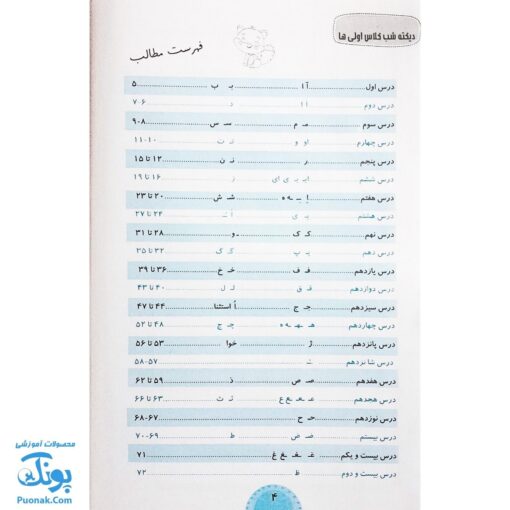 دیکته شب کلاس اولی ها
فهرست مطالب
درس اول آ ا بـ ب ۵
درس دوم ا ا د ۷-۶
درس سوم مـ م سـ س ۹-۸
درس چهارم او و تـ ت ۱۱-۱۰
درس پنجم ر نـ ن ۱۲ تا ۱۵
درس ششم ایـ یـ ی ای ز ۱۶ تا ۱۹
درس هفتم اِ ـِ ـه ه شـ ش ۲۰ تا ۲۳
درس هشتم یـ ی اُ ۲۴ تا ۲۷
درس نهم کـ ک و ۲۸ تا ۳۱
درس دهم پـ پ گـ گ ۳۲ تا ۳۵
درس یازدهم فـ ف خـ خ ۳۶ تا ۳۹
درس دوازدهم قـ ق لـ ل ۴۰ تا ۴۳
درس سیزدهم جـ ج اُ استثنا ۴۴ تا ۴۷
درس چهاردهم هـ ـهـ ـه ه چـ چ ۴۸ تا ۵۲
درس پانزدهم ژ خوا ۵۳ تا ۵۶
درس شانزدهم ۵۸-۵۷
درس هفدهم صـ ص ذ ۵۹ تا ۶۲
درس هجدهم عـ ـعـ ـع ع ثـ ث ۶۳ تا ۶۶
درس نوزدهم حـ ح ۶۸-۶۷
درس بیستم ضـ ض ط ۷۰-۶۹
درس بیست و یکم غـ ـغـ ـغ غ ۷۱
درس بیست و دوم ظ ۷۲
۴
محصولات آموزشی
پونک
Puonak.Com